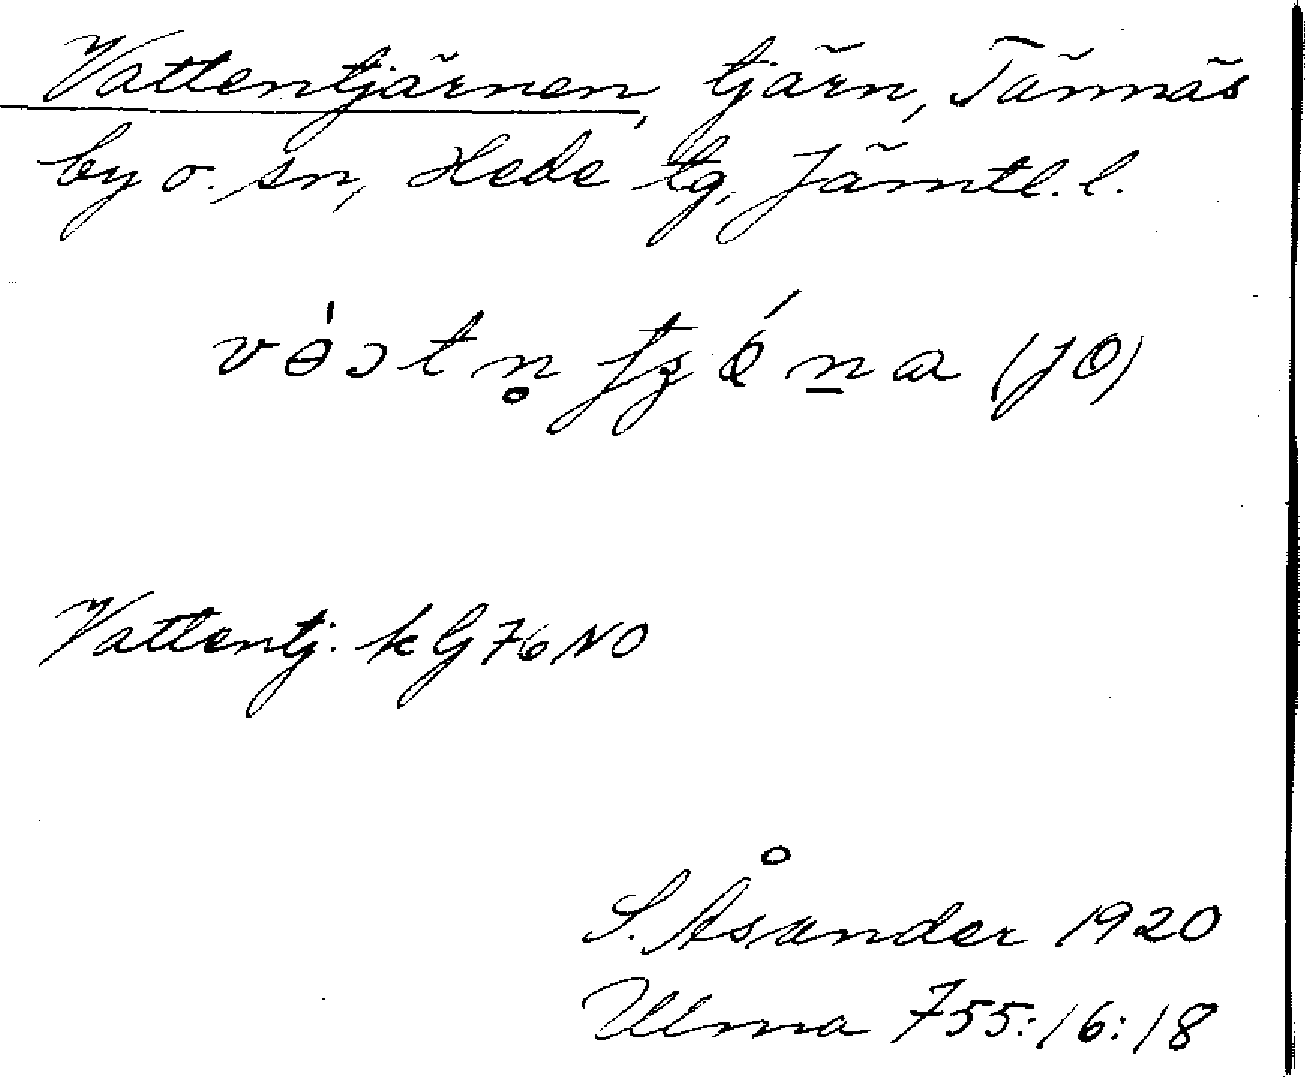 Vattentjärnen, tjärn, Tännäs
by o. sn, Hede tg, Jämtl. l.
(JO)
Vattentj. kG76NO
S. Åsander 1920
Ulma 755:16:18